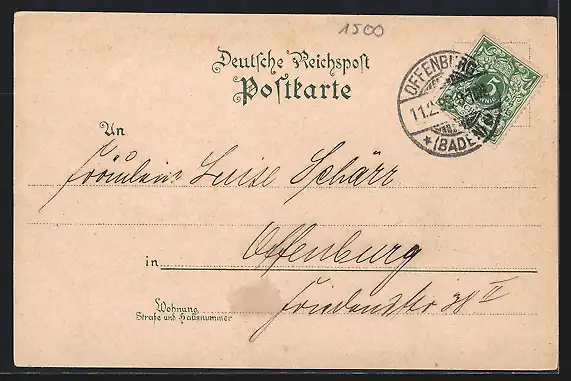 1500
Deutsche Reichspost
Postkarte
OFFENBURG
11.2.
* (BADEN)
5
An
Fräulein Luise Schärr
in Offenburg
Wohnung
Straße und Hausnummer
Friedenstr 38 II